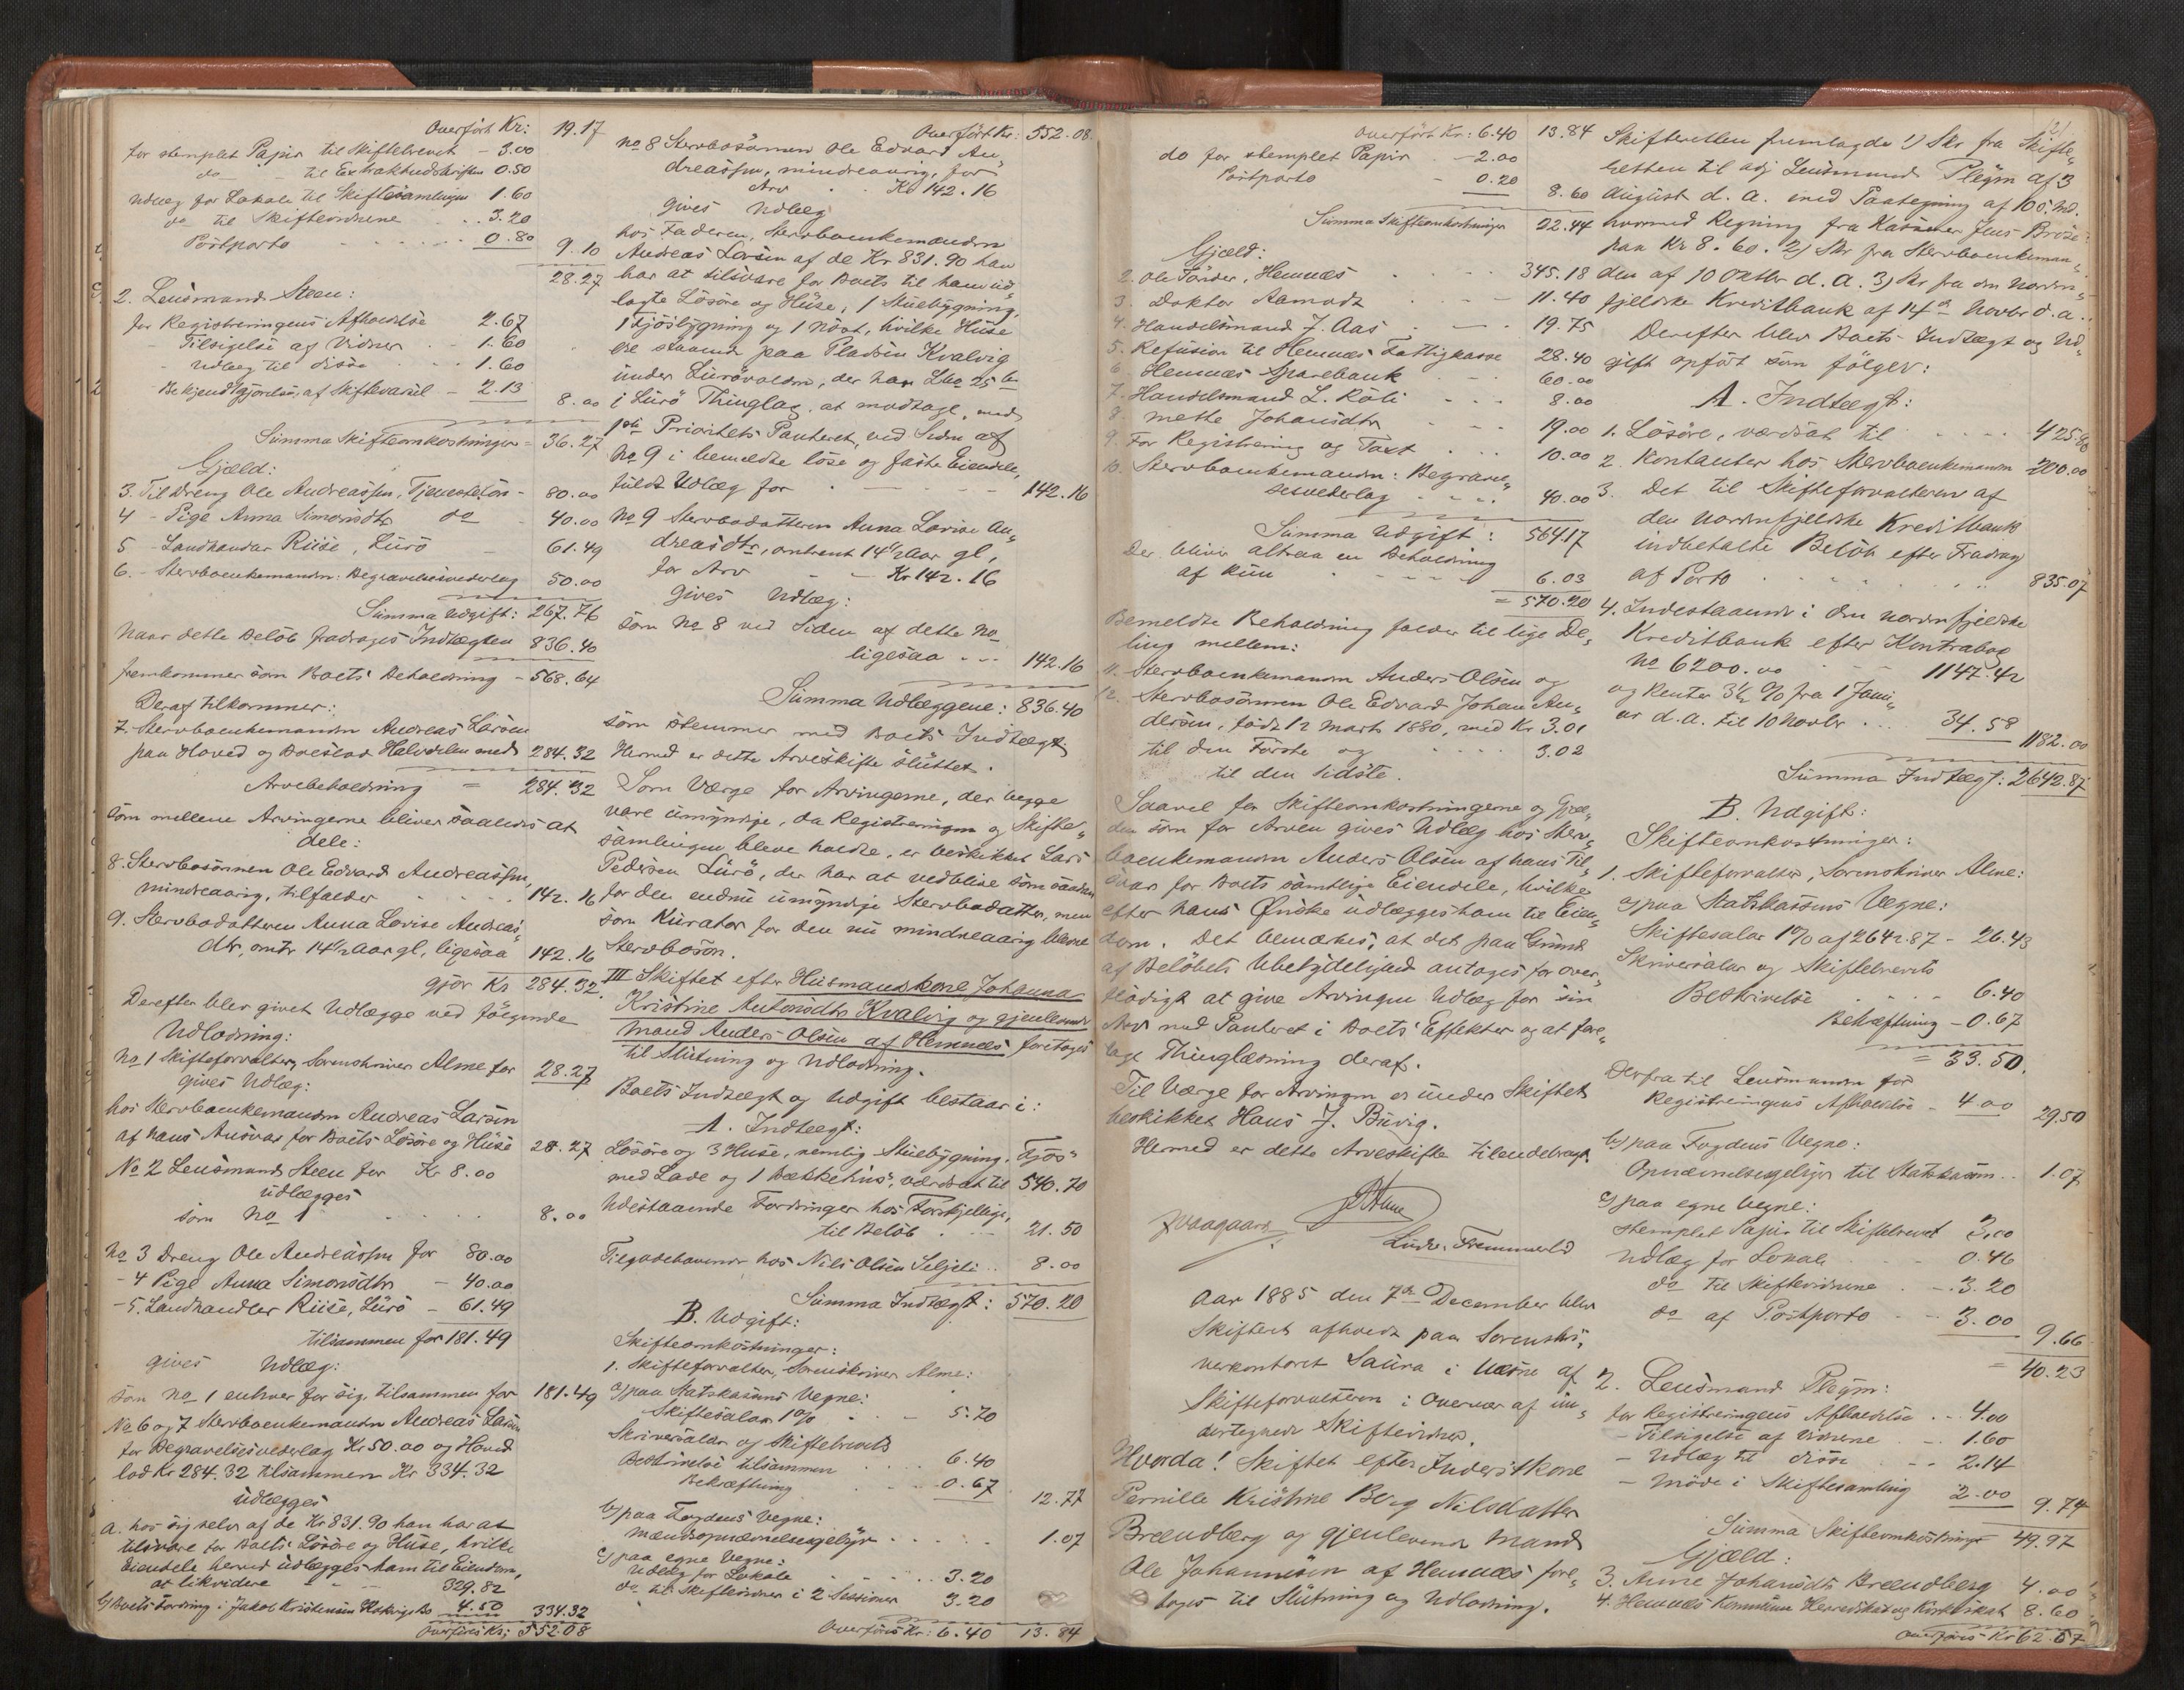 Overført Kr: 19.17
for stemplet Papir til Skiftebrevet - 3.00
do - til Extraktudskriften 0.50
Udlæg for Lokale til Skiftesamlingen 1.60
do til Skiftevidnene . . 3.20
Postporto - - - - - 0.80
9.10
28.27
2. Lensmand Steen:
for Registreringens Afholdelse 2.67
- Tilsigelse af Vidner - 1.60
- Udlæg til disse - 1.60
Bekjendtgjørelse af Skiftevarsel - 2.13
8.00
Summa Skifteomkostninger = 36.27
Gjæld:
3. Til Dreng Ole Andreassen, Tjenesteløn - 80.00
4 - Pige Anna Simonsdtr do - 40.00
5 - Landhandler Riise, Lurø - 61.49
6. - Stervboenkemanden: Begravelsesvederlag 50.00
Summa Udgift: 267.76
Naar dette Beløb fradrages Indtægten 836.40
fremkommer som Boets Beholdning - 568.64
Deraf tilkommer:
7. Stervboenkemanden Andreas Larsen
paa Hoved og Boeslod Halvdelen med 284.32
Arvebeholdning = 284.32
som mellem Arvingerne bliver saaledes at
dele:
8. Stervbosønnen Ole Edvard Andreassen,
mindreaarig, tilfalder - 142.16
9. Stervbodatteren Anna Lovise Andreas-
dtr, omtr 14½ Aar gl, ligesaa 142.16
gjør Kr 284.32.
Derefter blev givet Udlægge ved følgende
Udlodning:
No 1 Skifteforvalter, Sorenskriver Alme for 28.27
gives Udlæg:
hos Stervboenkemanden Andreas Larsen
af hans Ansvar for Boets Løsøre og Huse 28.27
No 2 Lensmand Steen for Kr 8.00
udlægges
som No 1 . . . . 8.00
No 3 Dreng Ole Andreassen for 80.00
- 4 Pige Anna Simonsdtr - 40.00
- 5. Landhandler Riise, Lurø - 61.49
tilsammen for 181.49
gives Udlæg:
som No 1 enhver for sig, tilsammen for 181.49
No 6 og 7 Stervboenkemanden Andreas Larsen
for Begravelsesvederlag Kr 50.00 og Hoved
lod Kr 284.32 tilsammen Kr 334.32
udlægges
a. hos sig selv af de Kr 831.90 han har at
tilsvare for Boets Løsøre og Huse, hvilke
Eiendele herved udlægges ham til Eiendom,
at likvidere - - 329.82
b) Boets Fordring i Jakob Kristensen 4.50 334.32
Overføres Kr: 552.08
Overført Kr: 552.08
No 8 Stervbosønnen Ole Edvard An-
dreassen, mindreaarig, for
Arv . - Kr 142.16
gives Udlæg
hos Faderen, Stervboenkemanden
Andreas Larsen af de Kr 831.90 han
har at tilsvare for Boets til ham ud-
lagte Løsøre og Huse, 1 Stuebygning,
1 Fjøsbygning og 1 Nøst, hvilke Huse
ere staaende paa Pladsen Kvalvig
under Lurøvalen, der har Lbo 25 b
i Lurø Thinglag at modtage, med
1ste Prioritets Panteret, ved Siden af
No 9 i bemeldte løse og faste Eiendele,
fuldt Udlæg for . - - - - 142.16
No 9 Stervbodatteren Anna Lovise An-
dreasdtr, omtrent 14½ Aar gl,
for Arv - - Kr 142.16
gives Udlæg:
som No 8 ved Siden af dette No
ligesaa - - - 142.16
Summa Udlæggene: 836.40
som stemmer med Boets Indtægt.
Hermed er dette Arveskifte sluttet.
Som Værge for Arvingerne, der begge
vare umyndige, da Registreringen og Skifte-
samlingen bleve holdte, er beskikket Lars
Pedersen Lurø, der har at vedblive som saadan
for den endnu umyndige Stervbodatter, men
som Kurator for den nu mindreaarig blevne
Stervbosøn.
III Skiftet efter Husmandskone Johanna
Kristine Antonsdtr Kvalvig og gjenlevende
Mand Anders Olsen af Hemnæs foretages
til Slutning og Udlodning.
Boets Indtægt og Udgift bestaar i:
A. Indtægt:
Løsøre og 3 Huse, nemlig Stuebygning, Fjøs
med Lade og 1 Bækkehus, værdsat til 540.70
Udestaaende Fordringer hos Forskjellige,
til Beløb . - - 21.50
Tilgodehavende hos Nils Olsen Seljeli . . 8.00
Summa Indtægt: 570.20
B. Udgift:
Skifteomkostninger:
1. Skifteforvalter, Sorenskriver Alme:
a) paa Statskassens Vegne:
Skiftesalar 1% . - - 5.70
Skriversalar og Skiftebrevets
Beskrivelse tilsammen . . . 6.40
Bekræftning . . - 0.67
12.77
b) paa Fogdens Vegne:
Mændsopnævnelsesgebyr . . . . . 1.07
c) paa egne Vegne:
Udlæg for Lokale . . . 3.20
do til Skiftevidner i 2 Sessioner 3.20
Overføres Kr: 6.40 13.84
Overført Kr: 6.40 13.84
do for stemplet Papir - 2.00
Postporto - 0.20
8.60
Summa Skifteomkostninger 22.44
Gjæld:
2. Ole Tønder, Hemnæs - - - 345.18
3. Doktor Aamodt . - - 11.40
4. Handelsmand J. Aas . - - 19.75
5. Refusion til Hemnæs Fattigkasse 28.40
6. Hemnæs Sparebank - - 60.00
7. Handelsmand L. Røli - - - 8.00
8. Mette Johansdtr - - - 19.00
9. For Registrering og Taxt . . . 10.00
10. Stervboenkemanden: Begravel-
sesvederlag - - - - 40.00
Summa Udgift: 564.17
Der bliver altsaa en Beholdning
af kun - - - - 6.03
= 570.20
Bemeldte Beholdning falder til lige De-
ling mellem:
11. Stervboenkemanden Anders Olsen og
12. Stervbosønnen Ole Edvard Johan An-
dersen, født 12 Marts 1880, med Kr 3.01
til den Første og - - - - 3.02
til den sidste.
Saavel for Skifteomkostningerne og Gjæl-
den som for Arven gives Udlæg hos Sterv-
boenkemanden Anders Olsen af hans Til-
svar for Boets samtlige Eiendele, hvilke
efter hans Ønske udlægges ham til Eien-
dom. Det bemærkes, at det paa Grund
af Beløbets Ubetydelighed antages for over-
flødigt at give Arvingen Udlæg for sin
Arv med Panteret i Boets Effekter og at fore-
tage Thinglæsning deraf.
Til Værge for Arvingen er under Skiftet
beskikket Hans J. Buvig.
Hermed er dette Arveskifte tilendebragt.
Alme
Aar 1885 den 7de December blev
Skifteret afholdt paa Sorenskri-
verkontoret Saura i Næsne af
Skifteforvalteren i Overvær af un-
dertegnede Skiftevidner.
Hvorda! Skiftet efter Inderstkone
Pernille Kristine Berg Nilsdatter
Brændberg og gjenlevende Mand
Ole Johannesen af Hemnæs fore-
toges til Slutning og Udlodning.
Skifteretten fremlagde 1) Skr fra Skifte-
retten til adj Lensmand Pleym af 3
August d. A. med Paategning af 10 S. Md.
hvorved Regning fra Kasserer Jens Brose
paa Kr 8.60. 2) Skr fra Stervboenkeman-
den af 10 Oktbr d. A. 3) Skr fra den Norden-
fjeldske Kreditbank af 14de Novbr d. A.
Derefter blev Boets Indtægt og Ud-
gift opført som følger:
A. Indtægt:
1. Løsøre, værdsat til - - - - 425.80
2. Kontanter hos Stervboenkemanden 200.00
3. Det til Skifteforvalteren af
den Nordenfjeldske Kreditbank
indbetalte Beløb efter Fradrag
af Porto . . . . . 835.07
4. Indestaaende i den Nordenfjeldske
Kreditbank efter Kontrabog
No 6200.00 1147.42
og Renter 3½ % fra 1 Janu-
ar d. A. til 10 Novbr . . . 34.58
1182.00
Summa Indtægt: 2642.87
B. Udgift:
Skifteomkostninger:
1. Skifteforvalter, Sorenskriver Alme:
a) paa Statskassens Vegne:
Skiftesalar 1% af 2642.87 - 26.43
Skriversalar og Skiftebrevets
Beskrivelse . . - - 6.40
Bekræftning - 0.67
= 33.50.
Derfra til Lensmanden for
Registreringens Afholdelse - 4.00 29.50
b) paa Fogdens Vegne:
Opnævnelsesgebyr til Statskassen . . 1.07
c) paa egne Vegne:
stemplet Papir til Skiftebrevet 3.00
Udlæg for Lokale - - 0.46
do til Skiftevidnene - - 3.20
do af Postporto - - 3.00
9.66
= 40.23
2. Lensmand Pleym:
for Registreringens Afholdelse . - 4.00
- Tilsigelse af Vidnene . - 1.60
- Udlæg til disse - - 2.14
- Møde i Skiftesamling 2.00
9.74
Summa Skifteomkostninger 49.97
Gjæld:
3. Anne Johansdtr Brændberg 4.00
4. Hemnæs Kommune Herredskat og Kirkeskat 8.60
Overføres Kr 62.57